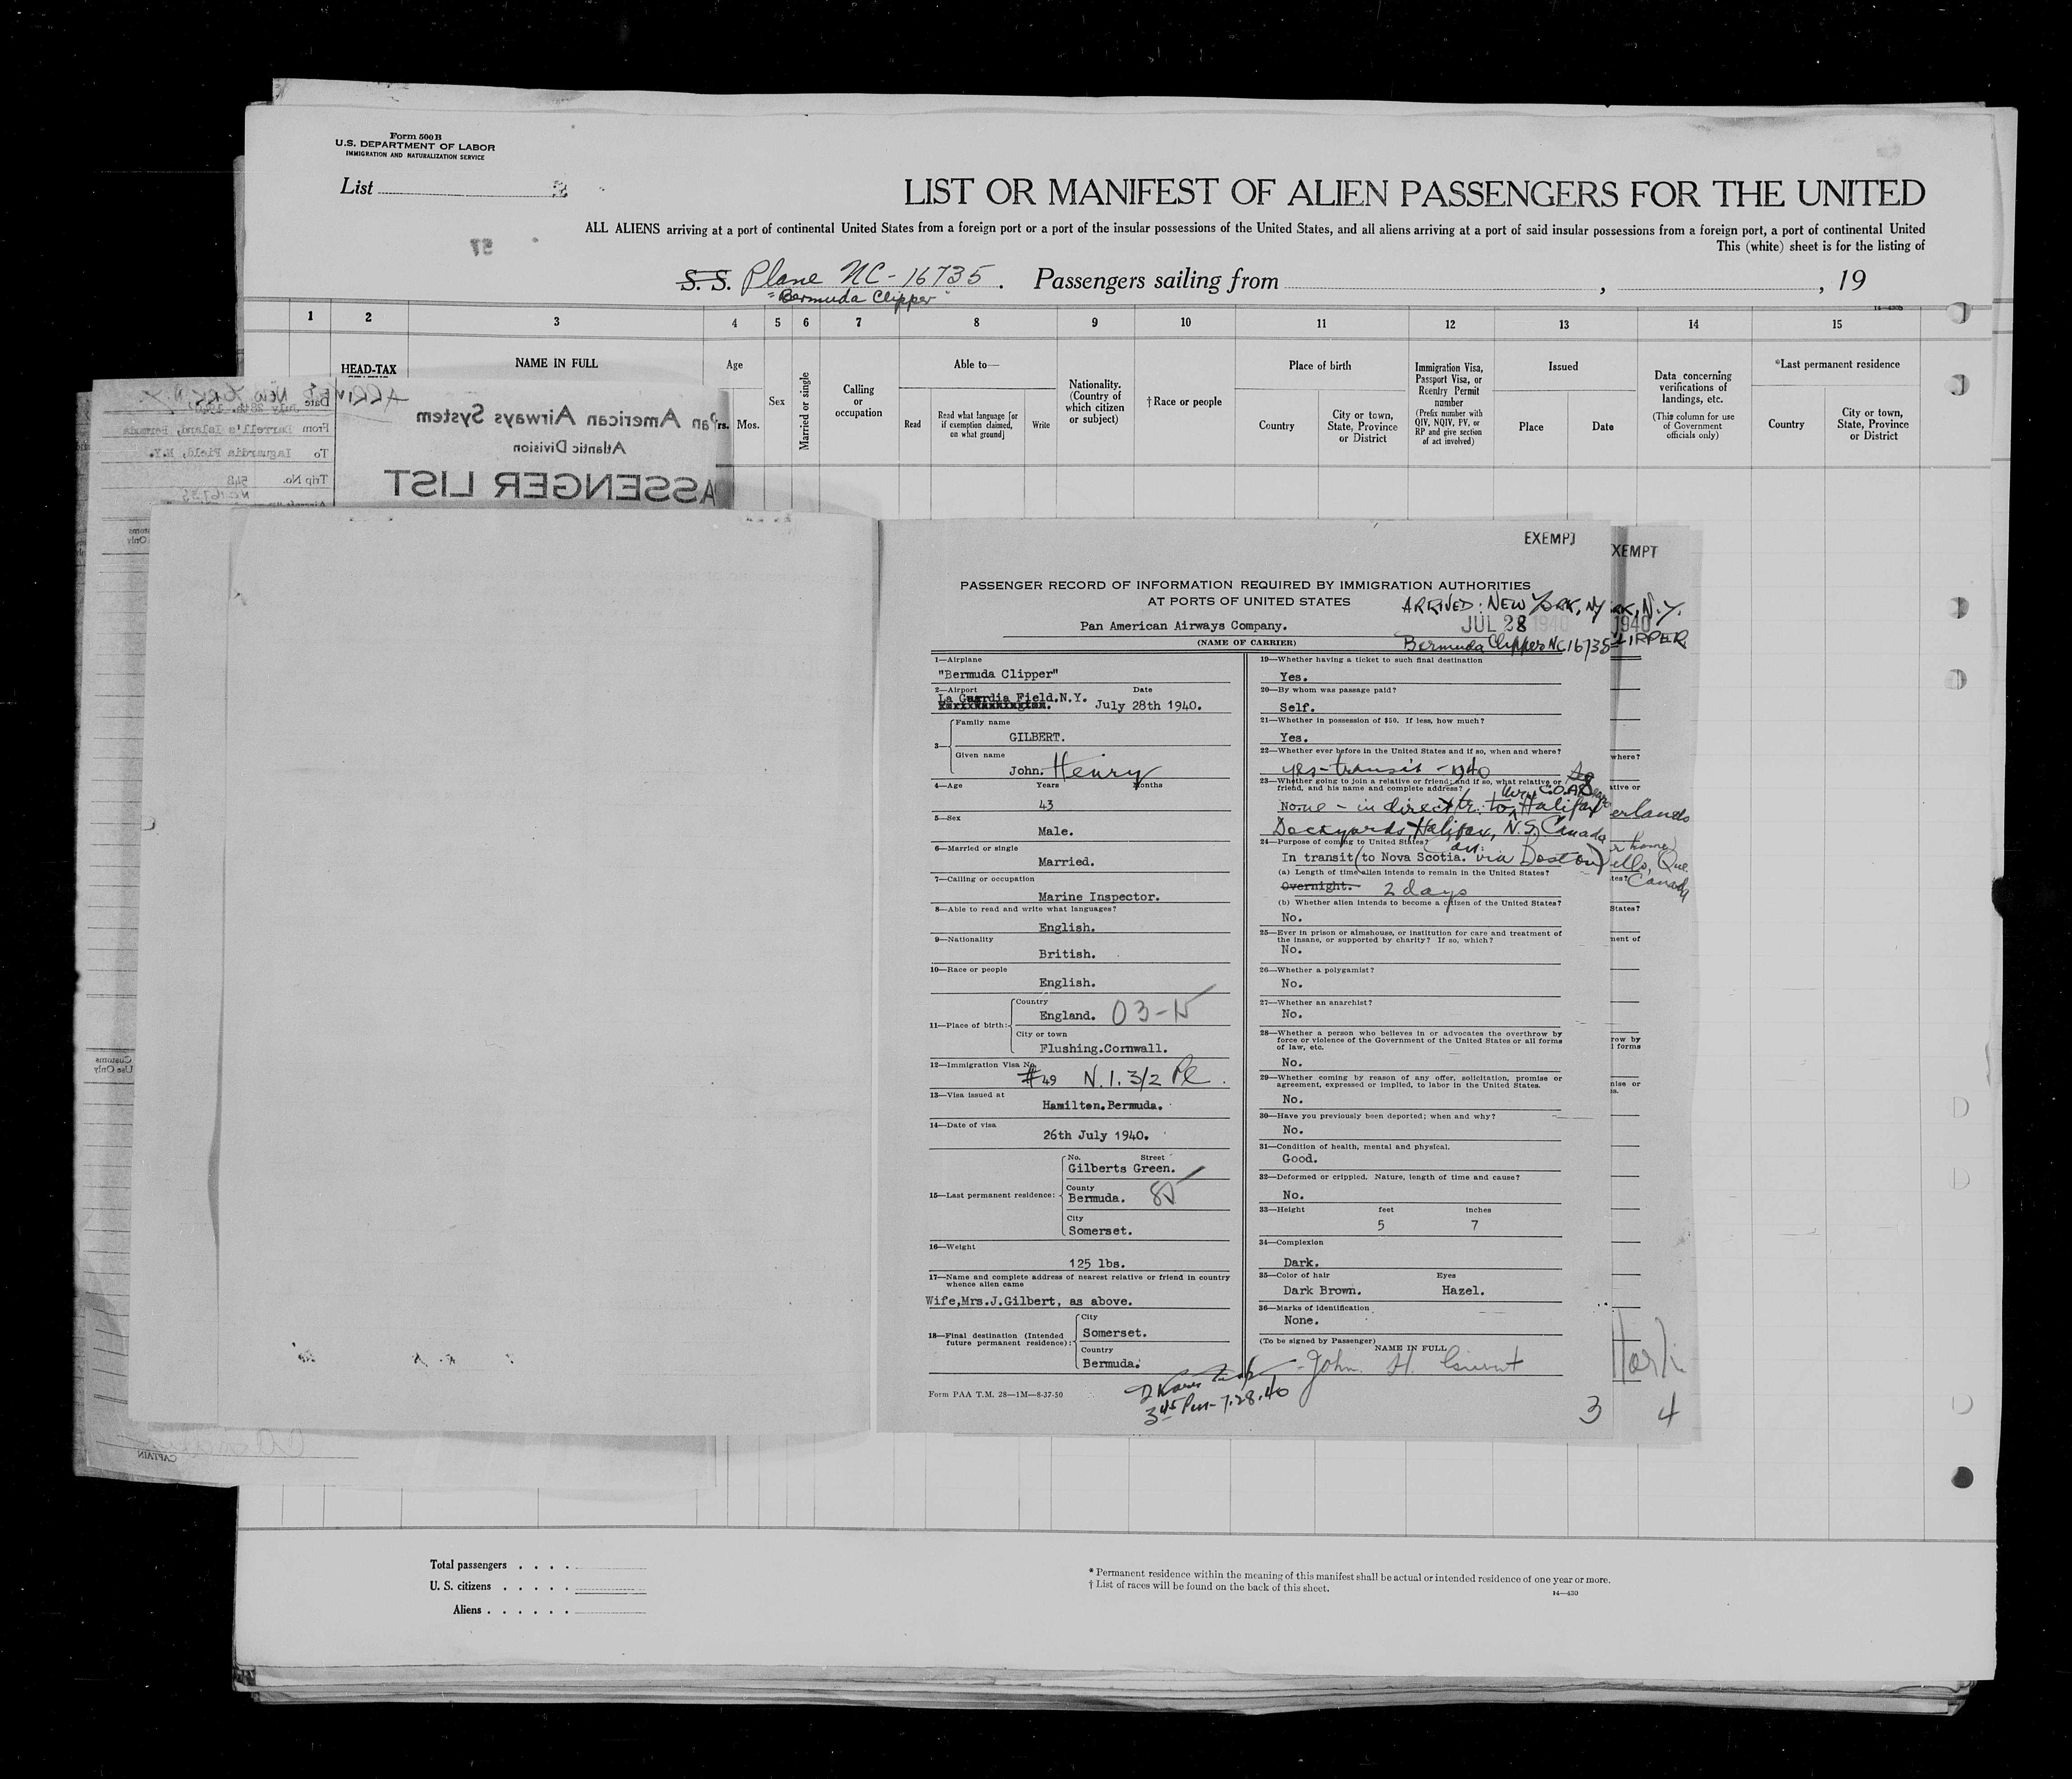 Form 500B
U.S. DEPARTMENT OF LABOR
IMMIGRATION AND NATURALIZATION SERVICE
List
LIST OR MANIFEST OF ALIEN PASSENGERS FOR THE UNITED
ALL ALIENS arriving at a port of continental United States from a foreign port or a port of the insular possessions of the United States, and all aliens arriving at a port of said insular possessions from a foreign port, a port of continental United
This (white) sheet is for the listing of
57
S. S. Plane NC-16735. Passengers sailing from , , 19
"Bermuda Clipper"
1 2 3 4 5 6 7 8 9 10 11 12 13 14 15
HEAD-TAX
NAME IN FULL
Age
Yrs. Mos.
Sex
Married or single
Calling or occupation
Able to—
Read
Read what language [or if exemption claimed, on what ground]
Write
Nationality. (Country of which citizen or subject)
†Race or people
Place of birth
Country
City or town, State, Province or District
Immigration Visa, Passport Visa, or Reentry Permit number
(Prefix number with QIV, NQIV, PV, or RP and give section of act involved)
Issued
Place
Date
Data concerning verifications of landings, etc.
(This column for use of Government officials only)
*Last permanent residence
Country
City or town, State, Province or District
Pan American Airways System
Atlantic Division
PASSENGER LIST
Date July 28th, 1940
From Darrell's Island, Bermuda
To Laguardia Field, N.Y.
Trip No. 548
NC16735
ARRIVED NEW YORK N.Y.
Customs
Use Only
CAPTAIN
EXEMPT
PASSENGER RECORD OF INFORMATION REQUIRED BY IMMIGRATION AUTHORITIES
AT PORTS OF UNITED STATES
ARRIVED: NEW YORK, NY
JUL 28 1940
Pan American Airways Company.
(NAME OF CARRIER)
Bermuda Clipper NC16735
1—Airplane
"Bermuda Clipper"
2—Airport Date
La Guardia Field.N.Y. July 28th 1940.
3— Family name
GILBERT.
Given name
John. Henry
4—Age Years Months
43
5—Sex
Male.
6—Married or single
Married.
7—Calling or occupation
Marine Inspector.
8—Able to read and write what languages?
English.
9—Nationality
British.
10—Race or people
English.
11—Place of birth: Country
England. 03-
City or town
Flushing.Cornwall.
12—Immigration Visa No.
#49 N.I. 3/2
13—Visa issued at
Hamilton.Bermuda.
14—Date of visa
26th July 1940.
15—Last permanent residence: No. Street
Gilberts Green.
County
Bermuda.
City
Somerset.
16—Weight
125 lbs.
17—Name and complete address of nearest relative or friend in country whence alien came
Wife,Mrs.J.Gilbert, as above.
18—Final destination (Intended future permanent residence): City
Somerset.
Country
Bermuda.
Form PAA T.M. 28—1M—8-37-50
3 45 Pm- 7.28.40
19—Whether having a ticket to such final destination
Yes.
20—By whom was passage paid?
Self.
21—Whether in possession of $50. If less, how much?
Yes.
22—Whether ever before in the United States and if so, when and where?
yes-transit-1940
23—Whether going to join a relative or friend; and if so, what relative or friend, and his name and complete address?
None - in direct tr. to Halifax
Dockyards, Halifax, N.S. Canada
24—Purpose of coming to United States?
In transit (to Nova Scotia. via Boston)
(a) Length of time alien intends to remain in the United States?
Overnight. 2 days
(b) Whether alien intends to become a citizen of the United States?
No.
25—Ever in prison or almshouse, or institution for care and treatment of the insane, or supported by charity? If so, which?
No.
26—Whether a polygamist?
No.
27—Whether an anarchist?
No.
28—Whether a person who believes in or advocates the overthrow by force or violence of the Government of the United States or all forms of law, etc.
No.
29—Whether coming by reason of any offer, solicitation, promise or agreement, expressed or implied, to labor in the United States.
No.
30—Have you previously been deported; when and why?
No.
31—Condition of health, mental and physical.
Good.
32—Deformed or crippled. Nature, length of time and cause?
No.
33—Height feet inches
5 7
34—Complexion
Dark.
35—Color of hair Eyes
Dark Brown. Hazel.
36—Marks of identification
None.
(To be signed by Passenger)
NAME IN FULL
John H. Gilbert
3
4
Total passengers
U. S. citizens
Aliens
* Permanent residence within the meaning of this manifest shall be actual or intended residence of one year or more.
† List of races will be found on the back of this sheet.
14—430